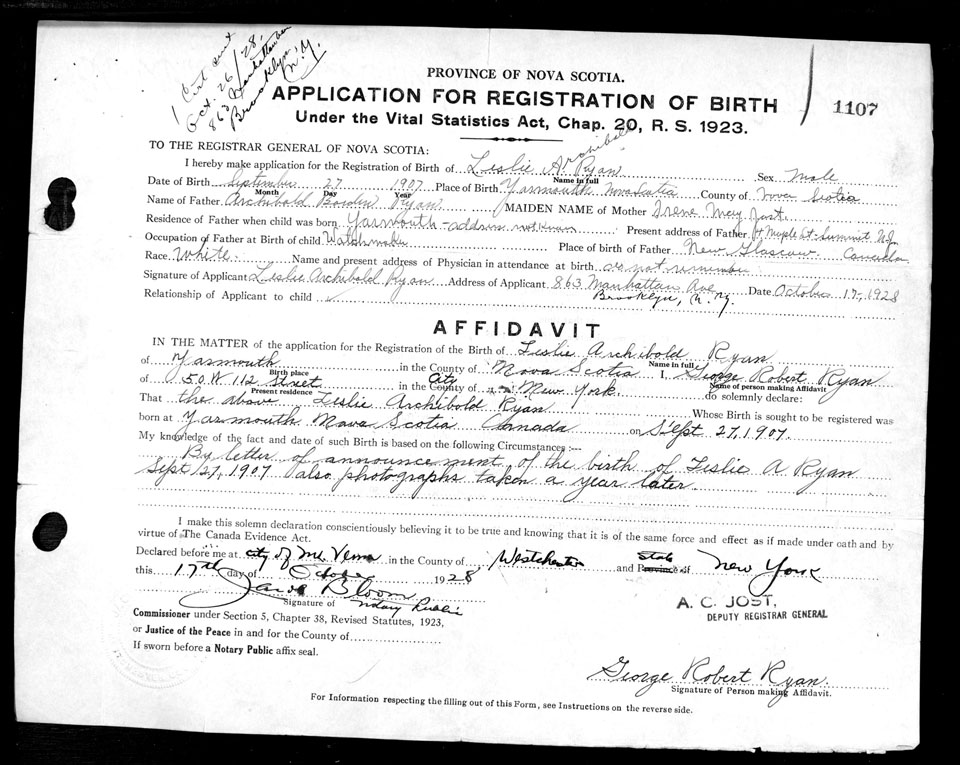 1 Cert sent
Oct. 26/28.
863 Manhattan Ave
Brooklyn,
N.Y.
PROVINCE OF NOVA SCOTIA.
APPLICATION FOR REGISTRATION OF BIRTH
1107
Under the Vital Statistics Act, Chap. 20, R. S. 1923.
TO THE REGISTRAR GENERAL OF NOVA SCOTIA:
I hereby make application for the Registration of Birth of Leslie Archibald Ryan Sex Male
Name in full
Date of Birth September 27 1907 Place of Birth Yarmouth Nova Scotia County of Nova Scotia
Month Day Year
Name of Father Archibald Bowden Ryan MAIDEN NAME of Mother Irene May Jost.
Residence of Father when child was born Yarmouth - address not known Present address of Father Maple St - Summit N.J.
Occupation of Father at Birth of child Watchmaker Place of Birth of Father New Glascow - Canadian
Race White. Name and present address of Physician in attendance at birth do not remember.
Signature of Applicant Leslie Archibald Ryan Address of Applicant 863 Manhattan Ave Date October 17, 1928
Brooklyn, N.Y.
Relationship of Applicant to child
AFFIDAVIT
IN THE MATTER of the application for the Registration of the Birth of Leslie Archibold Ryan
Name in full
of Yarmouth in the County of Nova Scotia I, George Robert Ryan
Birth place Name of person making Affidavit
of 50 W 112 Street in the City County of New York do solemnly declare:
Present residence
That the above Leslie Archibold Ryan Whose Birth is sought to be registered was
born at Yarmouth Nova Scotia Canada on Sept 27, 1907.
My knowledge of the fact and date of such Birth is based on the following Circumstances :—
By letter of announcement of the birth of Leslie A Ryan
Sept 27, 1907 also photographs taken a year later.
I make this solemn declaration conscientiously believing it to be true and knowing that it is of the same force and effect as if made under oath and by
virtue of The Canada Evidence Act.
Declared before me at city of Mt Vernon in the County of Westchester and state Province of New York
this 17th day of October 1928
Bloom
Signature of Notary Public
A. C. JOST,
DEPUTY REGISTRAR GENERAL
Commissioner under Section 5, Chapter 38, Revised Statutes, 1923,
or Justice of the Peace in and for the County of
If sworn before a Notary Public affix seal.
George Robert Ryan.
Signature of Person making Affidavit.
For Information respecting the filling out of this Form, see Instructions on the reverse side.